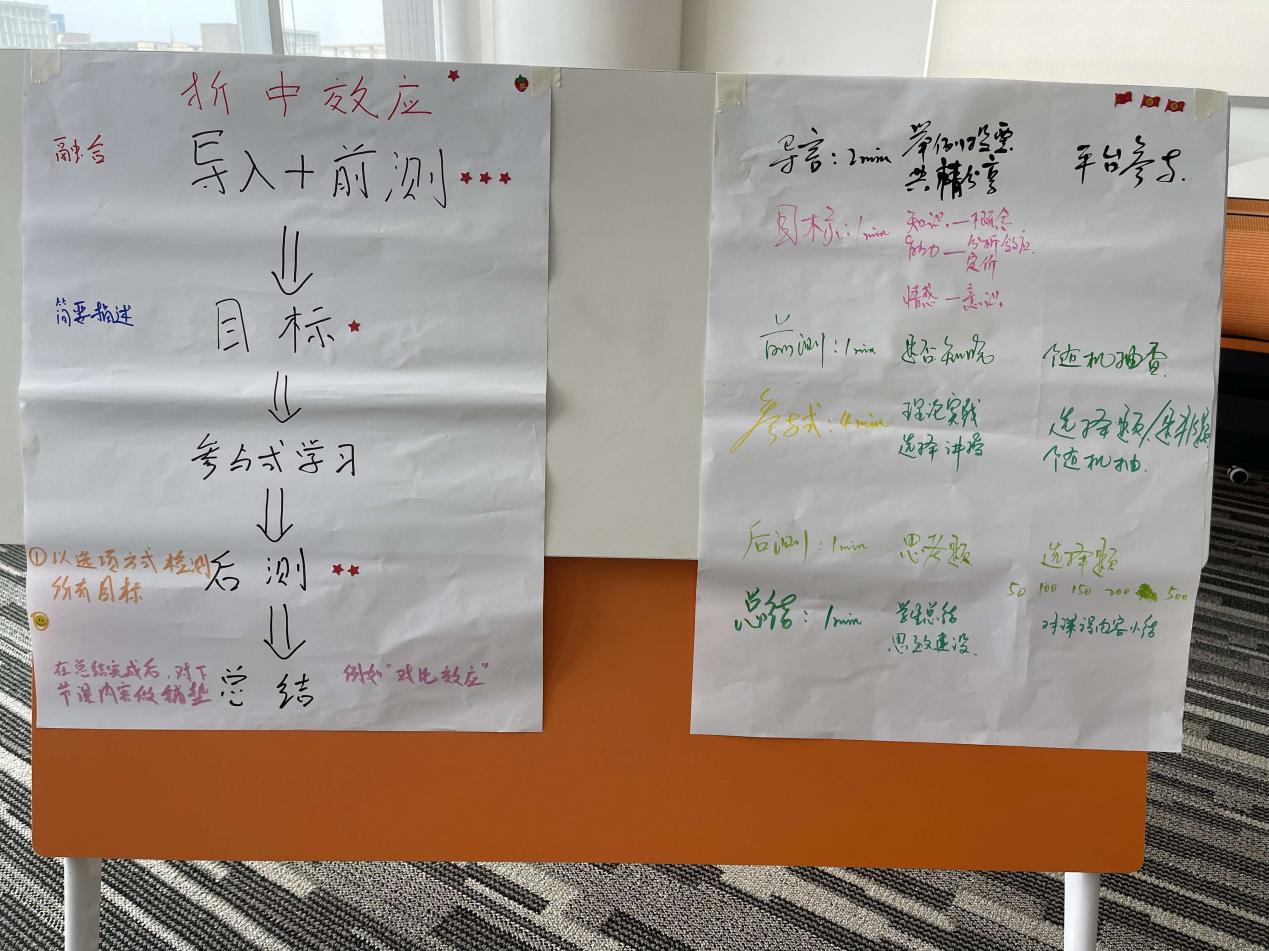 折中效应
融合
导入+前测
简要描述
目标
参与式学习
①以选项方式检测
所有目标
后测
在总结完成后,对下
节课内容做铺垫
总结
例如"对比效应"
导言:2min
举例投票
共情分享
平台参与.
目标:1min
知识—概念
能力—分析效应
定价
情感—意识
前测:1min
是否知晓
个随机抽查
参与式:4min
理论实践
选择讲授
选择题/是非题
个随机抽.
后测:1min
思考题
选择题
50 100 150 200 500
总结:1min
学生总结
思政建设.
对课设内容小结